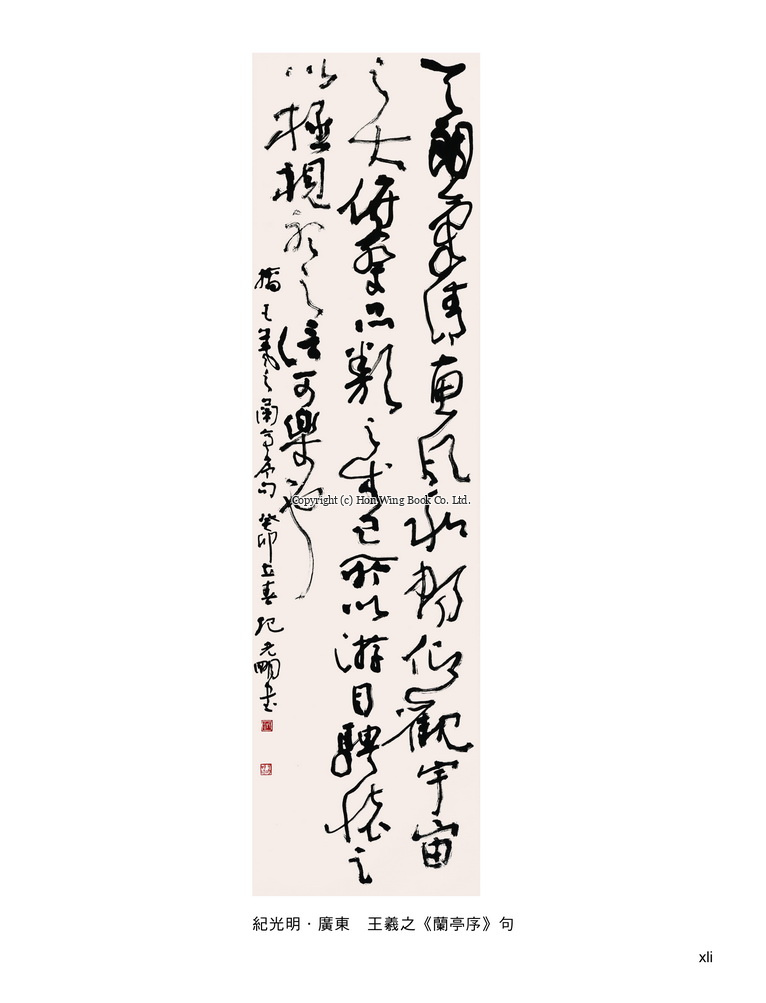 天朗氣清惠風和暢仰觀宇宙
之大俯察品類之盛所以游目騁懷足
以極視聽之信可樂也
摘王羲之蘭亭序句 癸卯立春 紀光明書
Copyright (c) Hon Wing Book Co. Ltd.
紀光明．廣東　王羲之《蘭亭序》句
xli